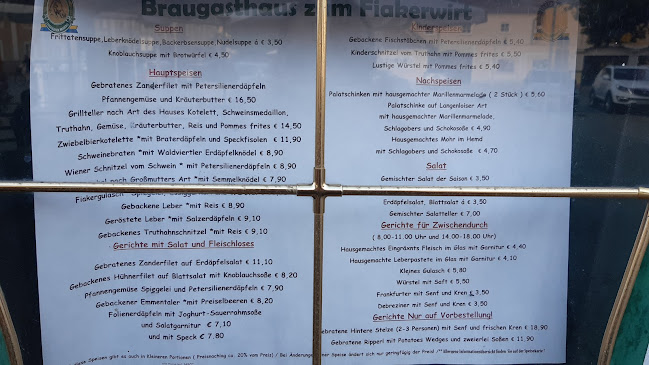 Braugasthaus zum Fiakerwirt
Suppen
Frittatensuppe, Leberknödelsuppe, Backerbsensuppe, Nudelsuppe á € 3,50
Knoblauchsuppe mit Brotwürfel € 4,50
Hauptspeisen
Gebratenes Zanderfilet mit Petersilienerdäpfeln
Pfannengemüse und Kräuterbutter € 16,50
Grillteller nach Art des Hauses Kotelett, Schweinsmedaillon,
Truthahn, Gemüse, Kräuterbutter, Reis und Pommes frites € 14,50
Zwiebelbierkotelette *mit Braterdäpfeln und Speckfisolen € 11,90
Schweinebraten *mit Waldviertler Erdäpfelknödel € 8,90
Wiener Schnitzel vom Schwein * mit Petersilienerdäpfeln € 8,90
nach Großmutters Art *mit Semmelknödel € 7,90
Fiakergulasch
Gebackene Leber *mit Reis € 8,90
Geröstete Leber *mit Salzerdäpfeln € 9,10
Gebackenes Truthahnschnitzel *mit Reis € 9,10
Gerichte mit Salat und Fleischloses
Gebratenes Zanderfilet auf Erdäpfelsalat € 11,10
Gebackenes Hühnerfilet auf Blattsalat mit Knoblauchsoße € 8,20
Pfannengemüse Spiegelei und Petersilienerdäpfeln € 7,90
Gebackener Emmentaler *mit Preiselbeeren € 8,20
Folienerdäpfeln mit Joghurt-Sauerrahmsoße
und Salatgarnitur € 7,10
und mit Speck € 7,80
Speisen gibt es auch in kleineren Portionen ( Preisnachlag ca. 20% vom Preis) / Bei Änderungen
Kinderspeisen
Gebackene Fischstäbchen mit Petersilienerdäpfeln € 5,40
Kinderschnitzel vom Truthahn mit Pommes frites € 5,50
Lustige Würstel mit Pommes frites € 5,40
Nachspeisen
Palatschinken mit hausgemachter Marillenmarmelade ( 2 Stück ) € 5,60
Palatschinke auf Langenloiser Art
mit hausgemachter Marillenmarmelade,
Schlagobers und Schokosoße € 4,90
Hausgemachtes Mohr im Hemd
mit Schlagobers und Schokosoße € 4,70
Salat
Gemischter Salat der Saison € 3,50
Erdäpfelsalat, Blattsalat á € 3,50
Gemischter Salatteller € 7,00
Gerichte für Zwischendurch
( 8.00-11.00 Uhr und 14.00-18.00 Uhr)
Hausgemachtes Eingrexnts Fleisch im Glas mit Garnitur € 4,40
Hausgemachte Leberpastete im Glas mit Garnitur € 4,10
Kleines Gulasch € 5,80
Würstel mit Saft € 5,50
Frankfurter mit Senf und Kren € 3,50
Debreziner mit Senf und Kren € 3,50
Gerichte Nur auf Vorbestellung!
Gebratene Hintere Stelze (2-3 Personen) mit Senf und frischen Kren € 18,90
Gebratene Ripperl mit Potatoes Wedges und zweierlei Soßen € 11,90
Speise ändert sich nur geringfügig der Preis!